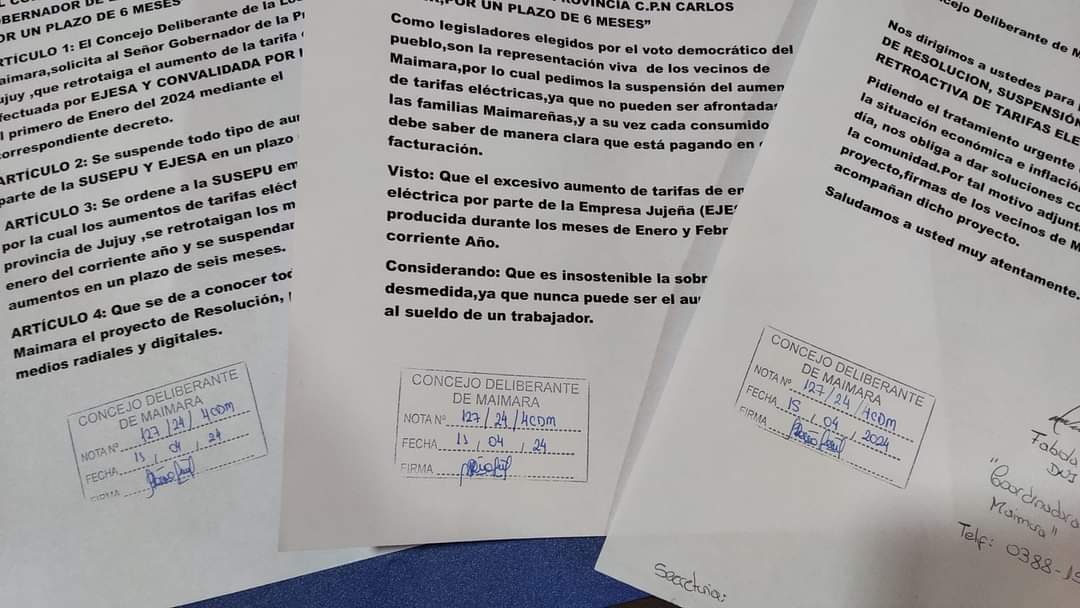 OBERNADOR DE
OR UN PLAZO DE 6 MESES"
RTÍCULO 1: El Concejo Deliberante de la
aimara,solicita al Señor Gobernador de la
ujuy ,que retrotaiga el aumento de la tarifa
fectuada por EJESA Y CONVALIDADA POR
l primero de Enero del 2024 mediante el
orrespondiente decreto.
ARTÍCULO 2: Se suspende todo tipo de
parte de la SUSEPU Y EJESA en un plazo
ARTÍCULO 3: Se ordene a la SUSEPU
por la cual los aumentos de tarifas
provincia de Jujuy ,se retrotaigan los
enero del corriente año y se suspendan
aumentos en un plazo de seis meses.
ARTÍCULO 4: Que se de a conocer
Maimara el proyecto de Resolución,
medios radiales y digitales.
CONCEJO DELIBERANTE
DE MAIMARA
NOTA Nº 127/24/4CDM
FECHA 13, 04, 24
FIRMA
PROVINCIA C.P.N CARLOS
,POR UN PLAZO DE 6 MESES"
Como legisladores elegidos por el voto democrático del
pueblo,son la representación viva de los vecinos de
Maimara,por lo cual pedimos la suspensión del aumen
de tarifas eléctricas,ya que no pueden ser afrontadas
las familias Maimareñas,y a su vez cada consumido
debe saber de manera clara que está pagando en
facturación.
Visto: Que el excesivo aumento de tarifas de en
eléctrica por parte de la Empresa Jujeña (EJES
producida durante los meses de Enero y Febr
corriente Año.
Considerando: Que es insostenible la sobr
desmedida,ya que nunca puede ser el au
al sueldo de un trabajador.
CONCEJO DELIBERANTE
DE MAIMARA
NOTA Nº 127/24/4CDM
FECHA 13, 04, 24
FIRMA
cejo Deliberante de M
Nos dirigimos a ustedes para
DE RESOLUCION, SUSPENSIÓN
RETROACTIVA DE TARIFAS ELE
Pidiendo el tratamiento urgente
la situación económica e inflación
día, nos obliga a dar soluciones co
la comunidad.Por tal motivo adjunt
proyecto,firmas de los vecinos de M
acompañan dicho proyecto.
Saludamos a usted muy atentamente.
CONCEJO DELIBERANTE
DE MAIMARA
NOTA Nº 127/24/4CDM
FECHA 13, 04, 2024
FIRMA
Fabida
DNI
"Coordinadora
Maimara"
Telf: 0388-15